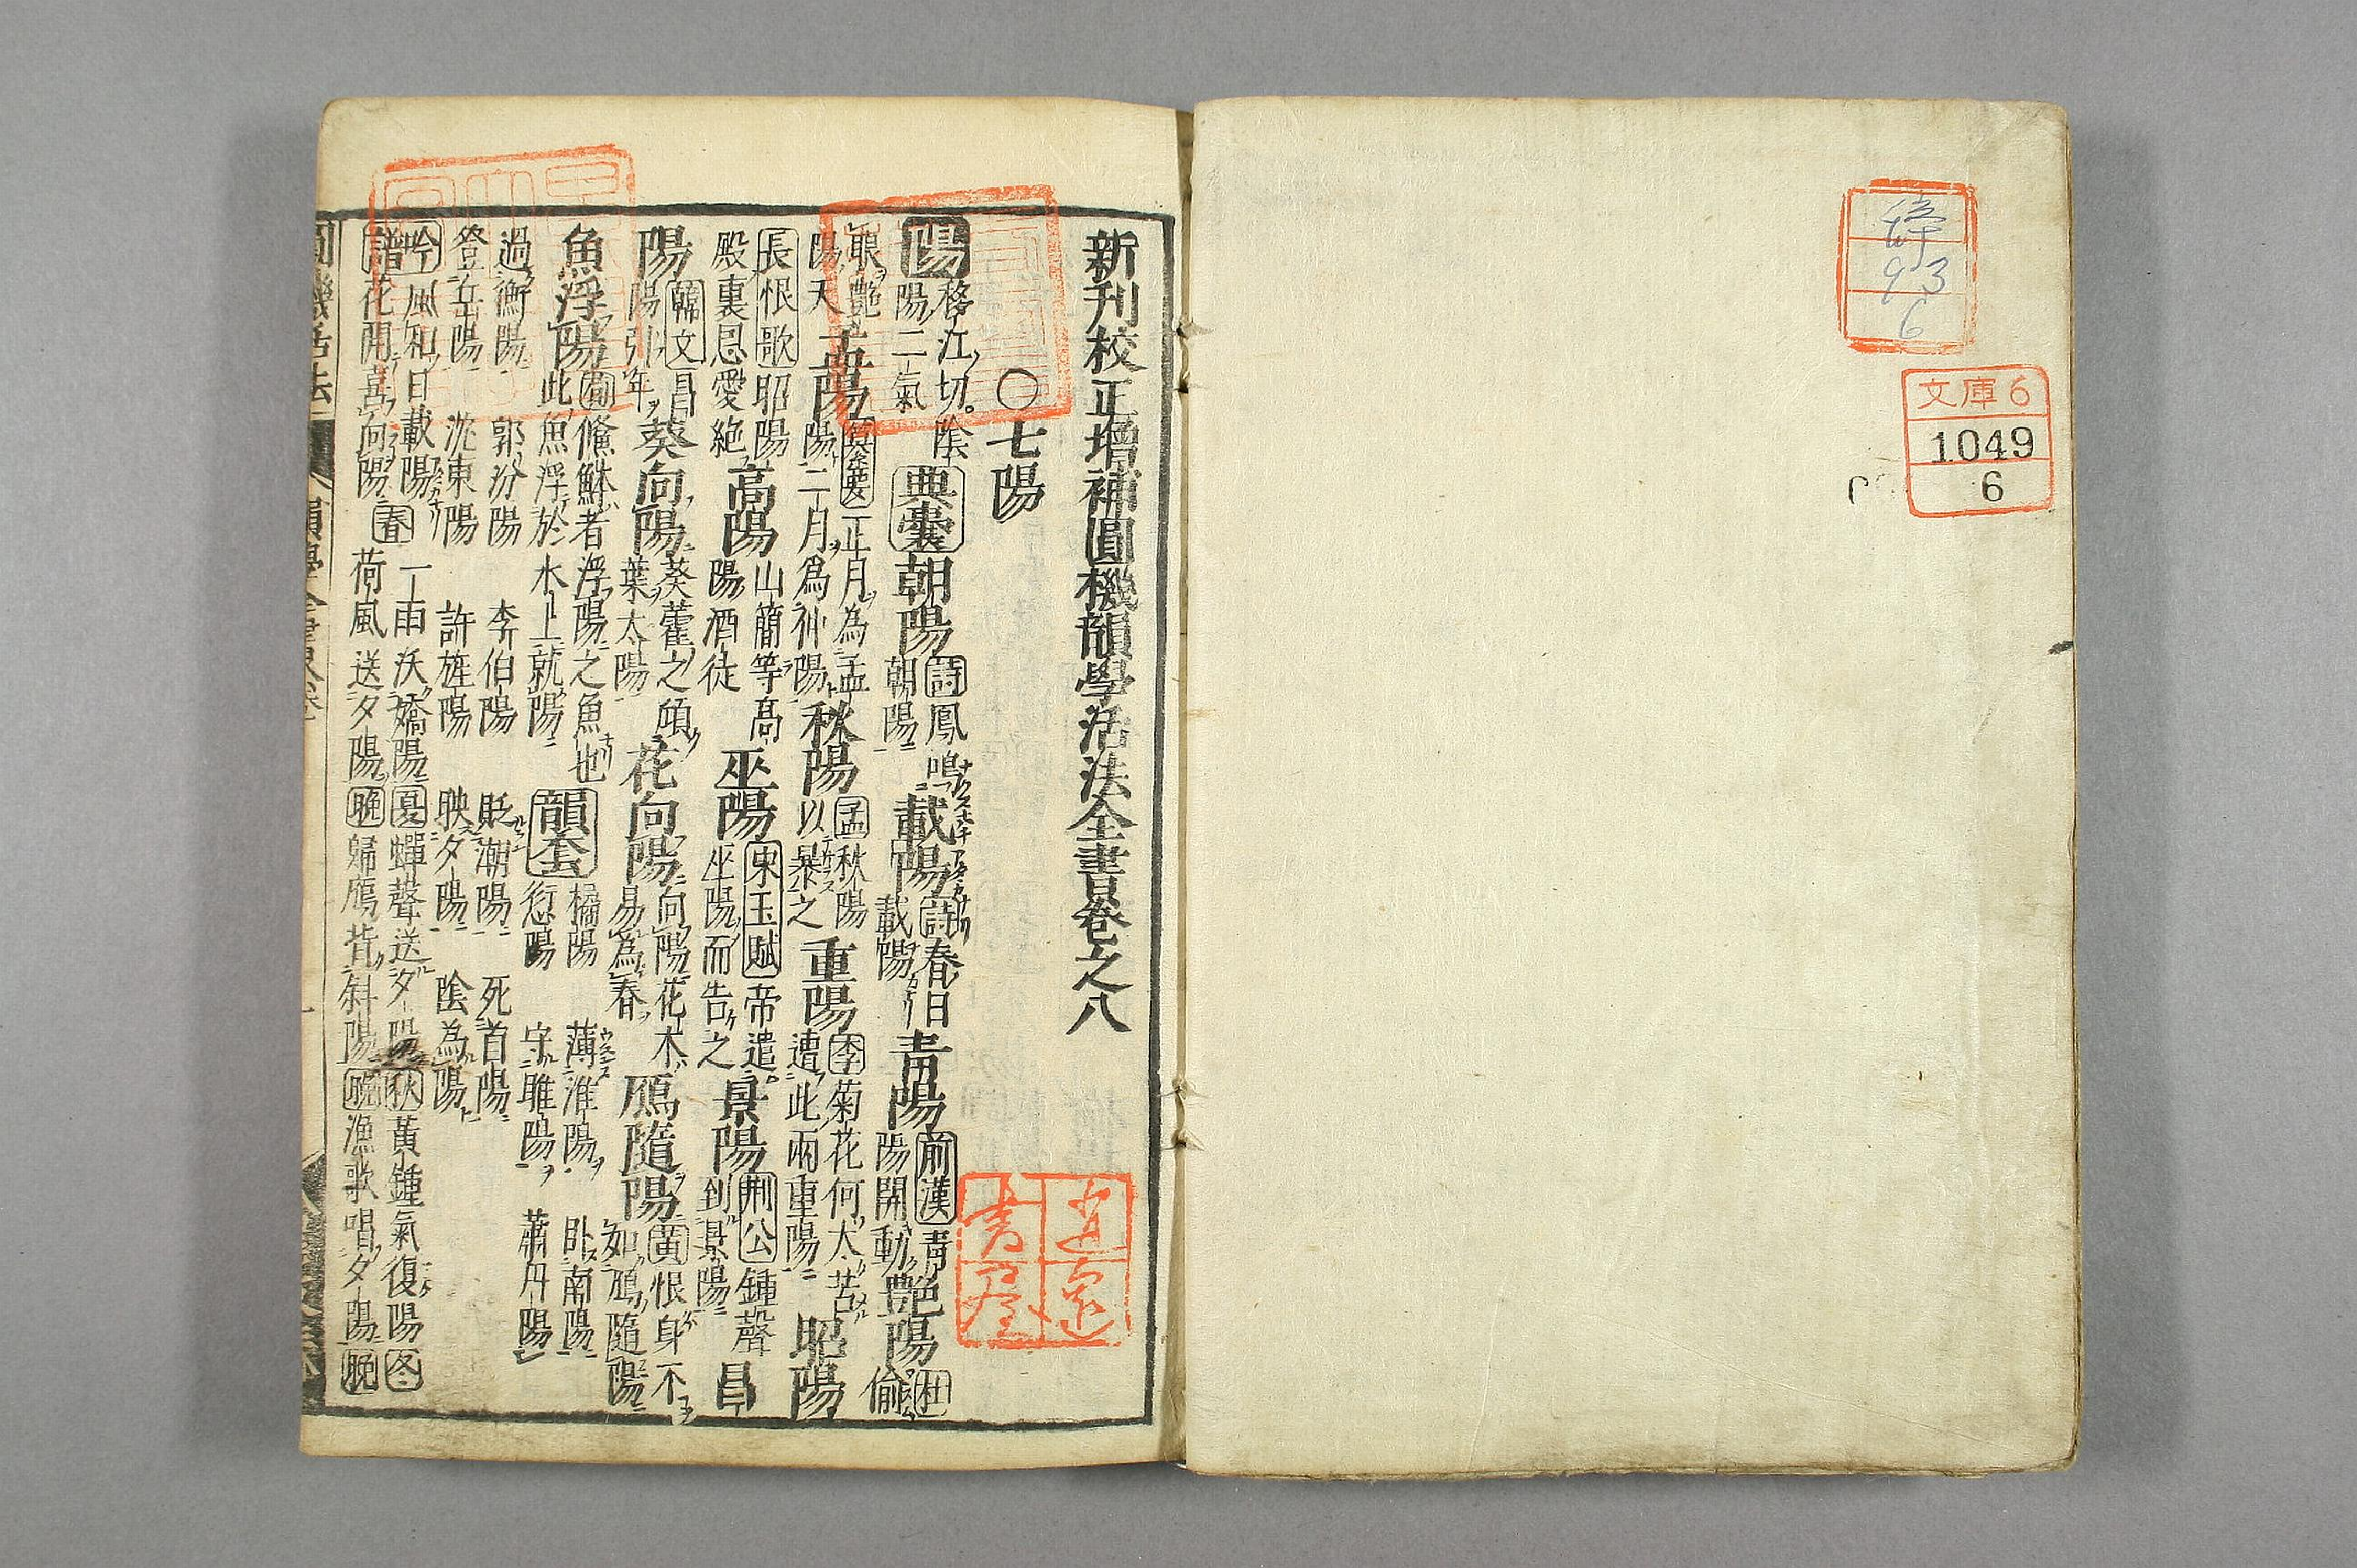 93
6
文庫6
1049
6
新刊校正增補圓機韻學活法全書卷之八
〇七陽
陽 移江切。陰陽二氣 典囊 朝陽 詩鳳鳴朝陽 載陽 詩春日載陽 青陽 前漢青陽開動 艷陽 杜偷
眼艷陽天 孟陽 纂要正月為孟陽二月爲仲陽 秋陽 孟秋陽以暴之 重陽 李菊花何太苦遭此兩重陽 昭陽
長恨歌昭陽殿裏恩愛絕 高陽 山簡等高陽酒徒 巫陽 宋玉賦帝遣巫陽而告之 景陽 荆公鍾聲到景陽 昌
陽 韓文昌陽引年 葵向陽 葵藿之傾葉太陽 花向陽 向陽花木易為春 鴈隨陽 黃恨身不如鴈隨陽
魚浮陽 者浮陽之魚也此魚浮於水上就陽 韻套 橘陽 薄淮陽 卧南陽 愆陽 守睢陽 蕭丹陽
過衡陽 郭汾陽 李伯陽 貶潮陽 死首陽
登岳陽 沈東陽 許旌陽 映夕陽 陰為陽
吟 風和日載陽 春 一雨沃嬌陽 夏 蟬聲送夕陽 秋 黃鍾氣復陽 冬
譜 花開喜向陽 荷風送夕陽 晚 歸鴈背斜陽 晚 漁歌唱夕陽 晚
圓機活法 韻學全書卷